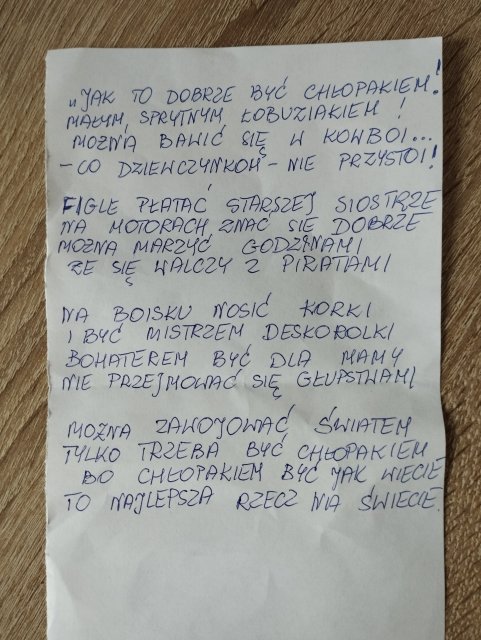 „JAK TO DOBRZE BYĆ CHŁOPAKIEM!
MAŁYM, SPRYTNYM ŁOBUZIAKIEM !
MOŻNA BAWIĆ SIĘ W KOWBOI...
– CO DZIEWCZYNKOM – NIE PRZYSTOI!
FIGLE PŁATAĆ STARSZEJ SIOSTRZE
NA MOTORACH ZNAĆ SIĘ DOBRZE
MOŻNA MARZYĆ GODZINAMI
ŻE SIĘ WALCZY Z PIRATAMI
NA BOISKU NOSIĆ KORKI
I BYĆ MISTRZEM DESKOROLKI
BOHATEREM BYĆ DLA MAMY
NIE PRZEJMOWAĆ SIĘ GŁUPSTWAMI
MOŻNA ZAWOJOWAĆ ŚWIATEM
TYLKO TRZEBA BYĆ CHŁOPAKIEM
BO CHŁOPAKIEM BYĆ JAK WIECIE
TO NAJLEPSZA RZECZ NA ŚWIECIE.